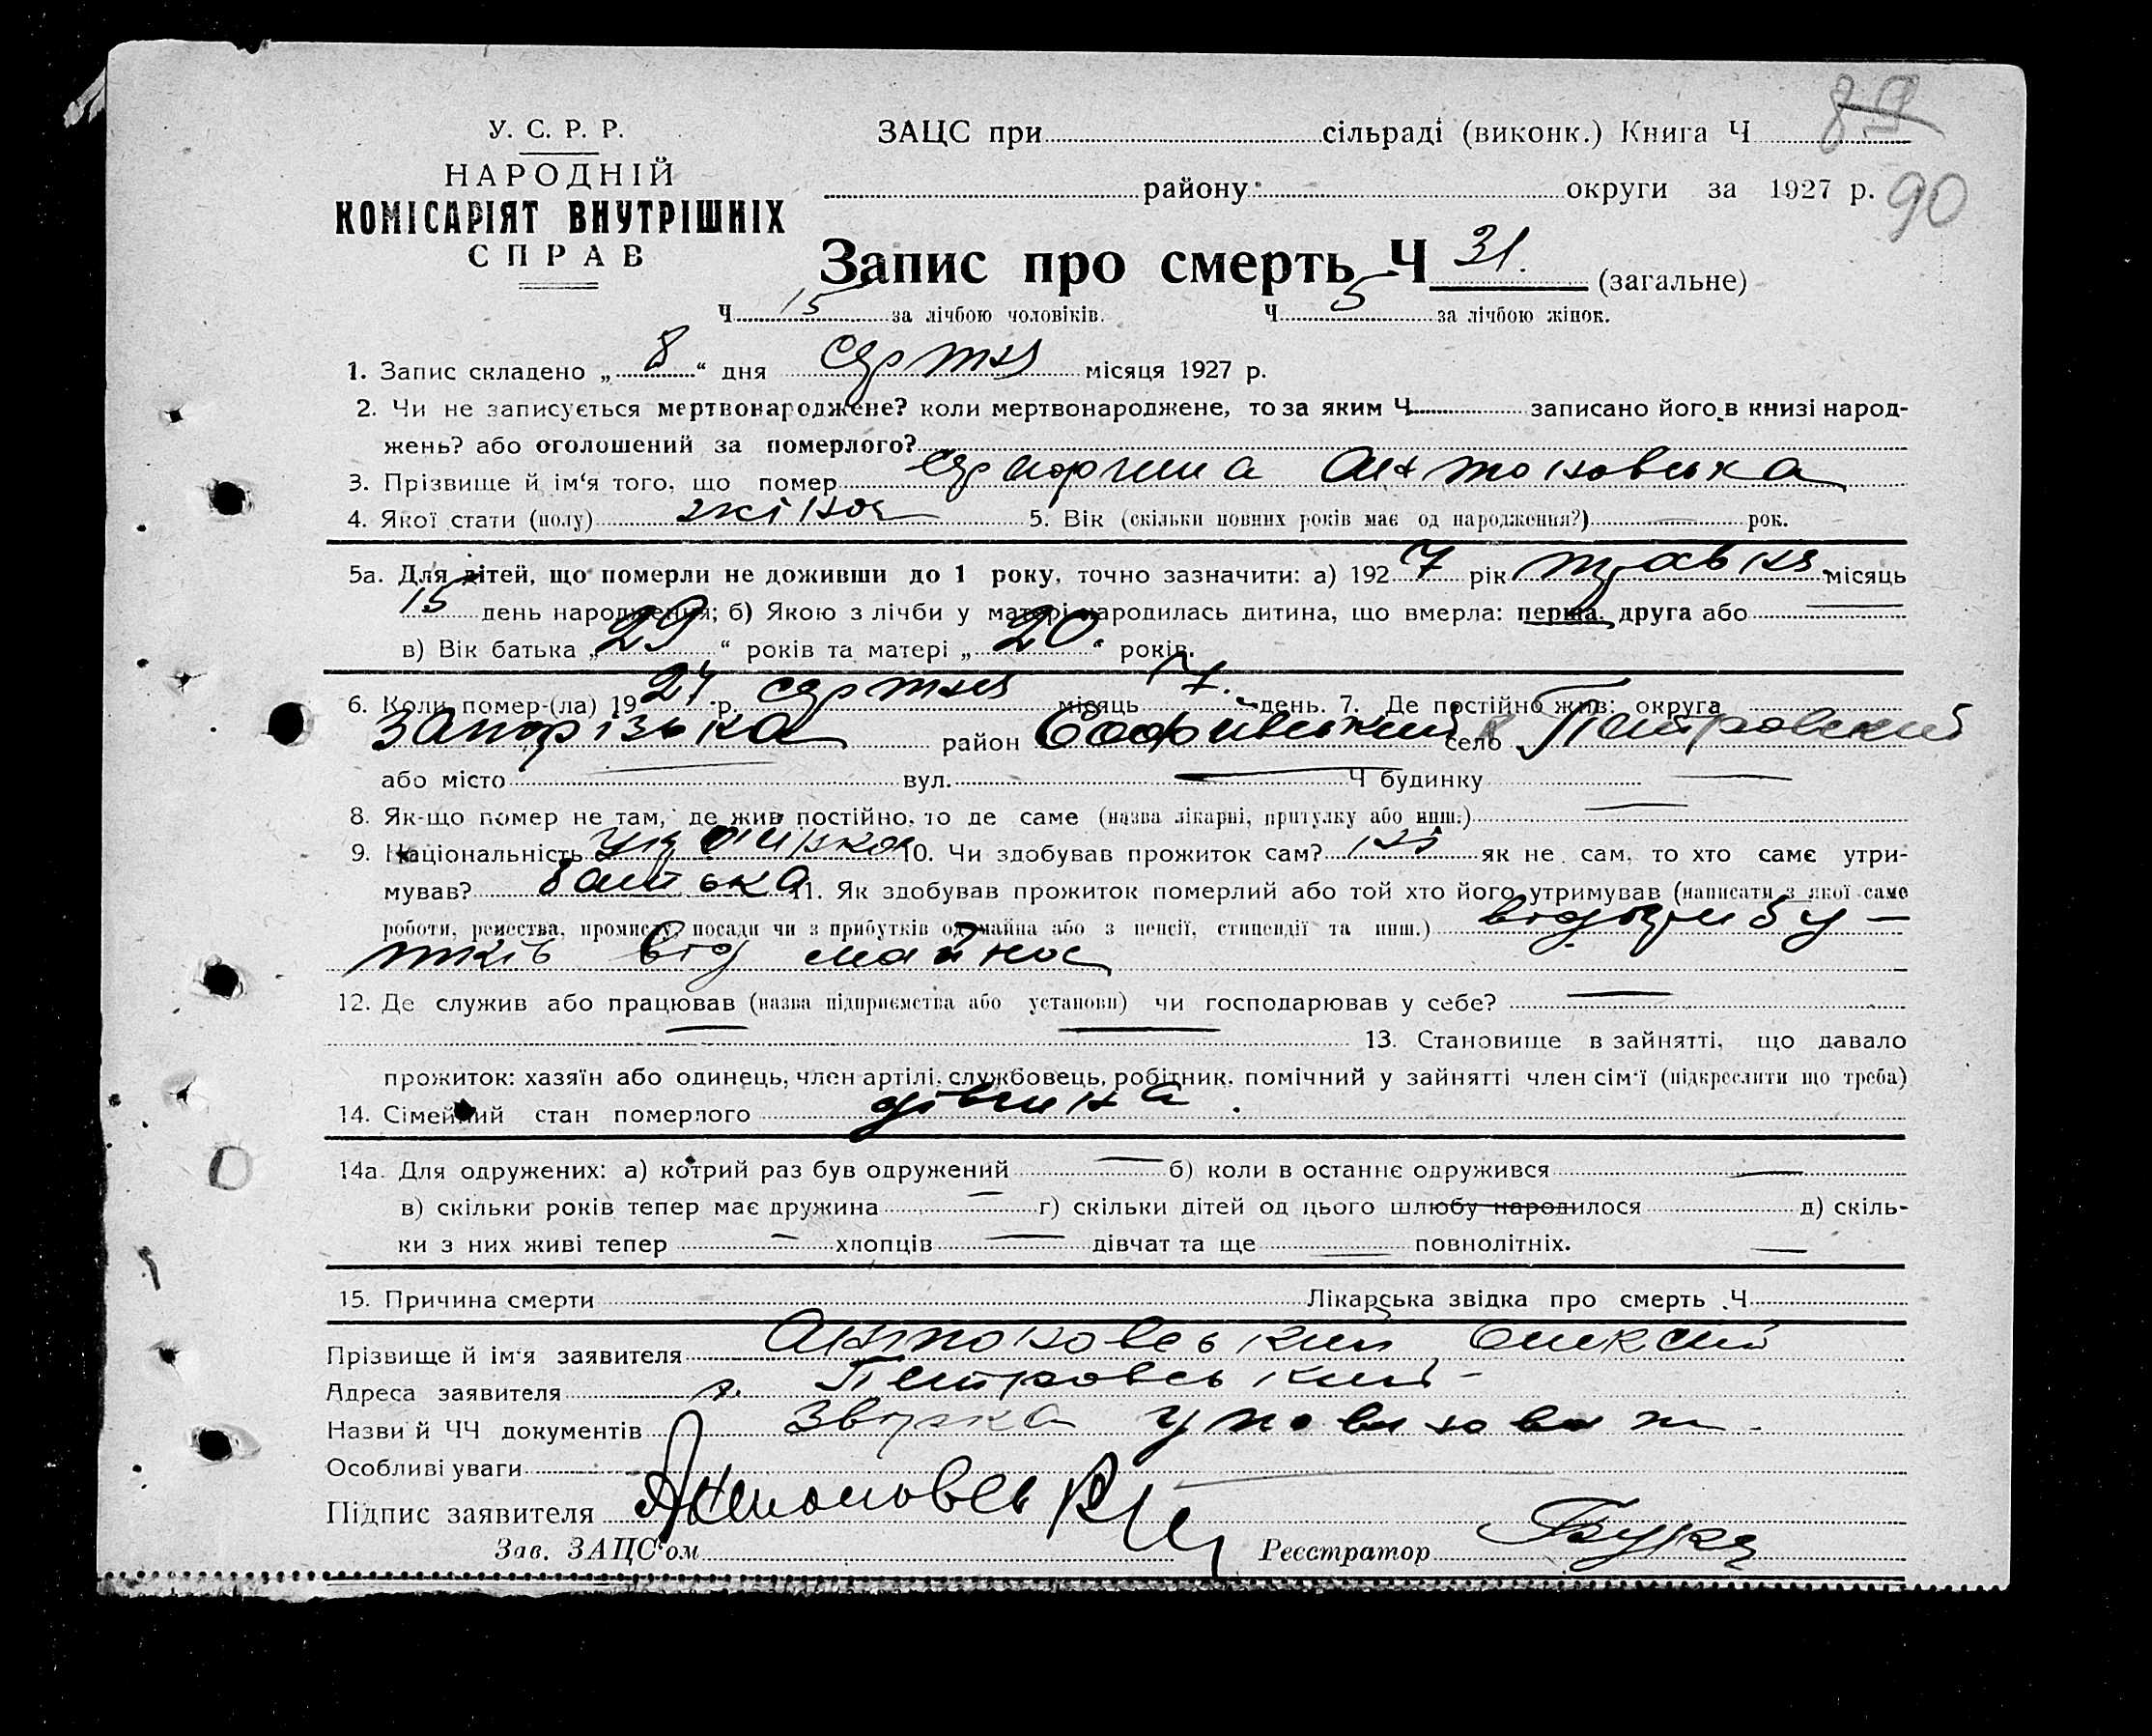 89
У. С. Р. Р.
НАРОДНІЙ
КОМІСАРІЯТ ВНУТРІШНІХ
СПРАВ
ЗАЦС при сільраді (виконк.) Книга Ч
району округи за 1927 р. 90
Запис про смерть Ч 31. (загальне)
Ч 15 за лічбою чоловіків. Ч 5 за лічбою жінок.
1. Запис складено „ 8 “ дня серпня місяця 1927 р.
2. Чи не записується мертвонароджене? коли мертвонароджене, то за яким Ч записано його в книзі народ-
жень? або оголошений за померлого?
3. Прізвище й ім‘я того, що помер Антоновська
4. Якої стати (полу) жіноч 5. Вік (скільки повних років має од народження?) — рок.
5а. Для дітей, що померли не доживши до 1 року, точно зазначити: а) 1927 рік травня місяць
15 день народження; б) Якою з лічби у матері народилась дитина, що вмерла: перша, друга або —
в) Вік батька „ 29 “ років та матері „ 20 “ років.
6. Коли помер-(ла) 1927 р. серпня місяць 7. день. 7. Де постійно жив: округа
Запорізька район Софиівський село х. Петровский
або місто — вул. — Ч будинку —
8. Як-що помер не там, де жив постійно, то де саме (назва лікарні, притулку або инш.) —
9. Національність українка 10. Чи здобував прожиток сам? ні як не сам, то хто саме утри-
мував? батька 11. Як здобував прожиток померлий або той хто його утримував (написати з якої саме
роботи, ремества, промислу, посади чи з прибутків од майна або з пенсії, стипендії та инш.) від прибу-
тків від майна
12. Де служив або працював (назва підприємства або установи) чи господарював у себе? —
— — 13. Становище в зайнятті, що давало
прожиток: хазяїн або одинець, член артілі, службовець, робітник, помічний у зайнятті член сім'ї (підкреслити що треба)
14. Сімейний стан померлого дівчина.
14а. Для одружених: а) котрий раз був одружений — б) коли в останнє одружився —
в) скільки років тепер має дружина — г) скільки дітей од цього шлюбу народилося д) скіль-
ки з них живі тепер — хлопців — дівчат та ще — повнолітніх. —
15. Причина смерти Лікарська звідка про смерть Ч
Прізвище й ім'я заявителя Антоновський Олексій
Адреса заявителя х. Петровський
Назви й ЧЧ документів
Особливі уваги —
Підпис заявителя Антоновський
Зав. ЗАЦС‘ом Реєстратор